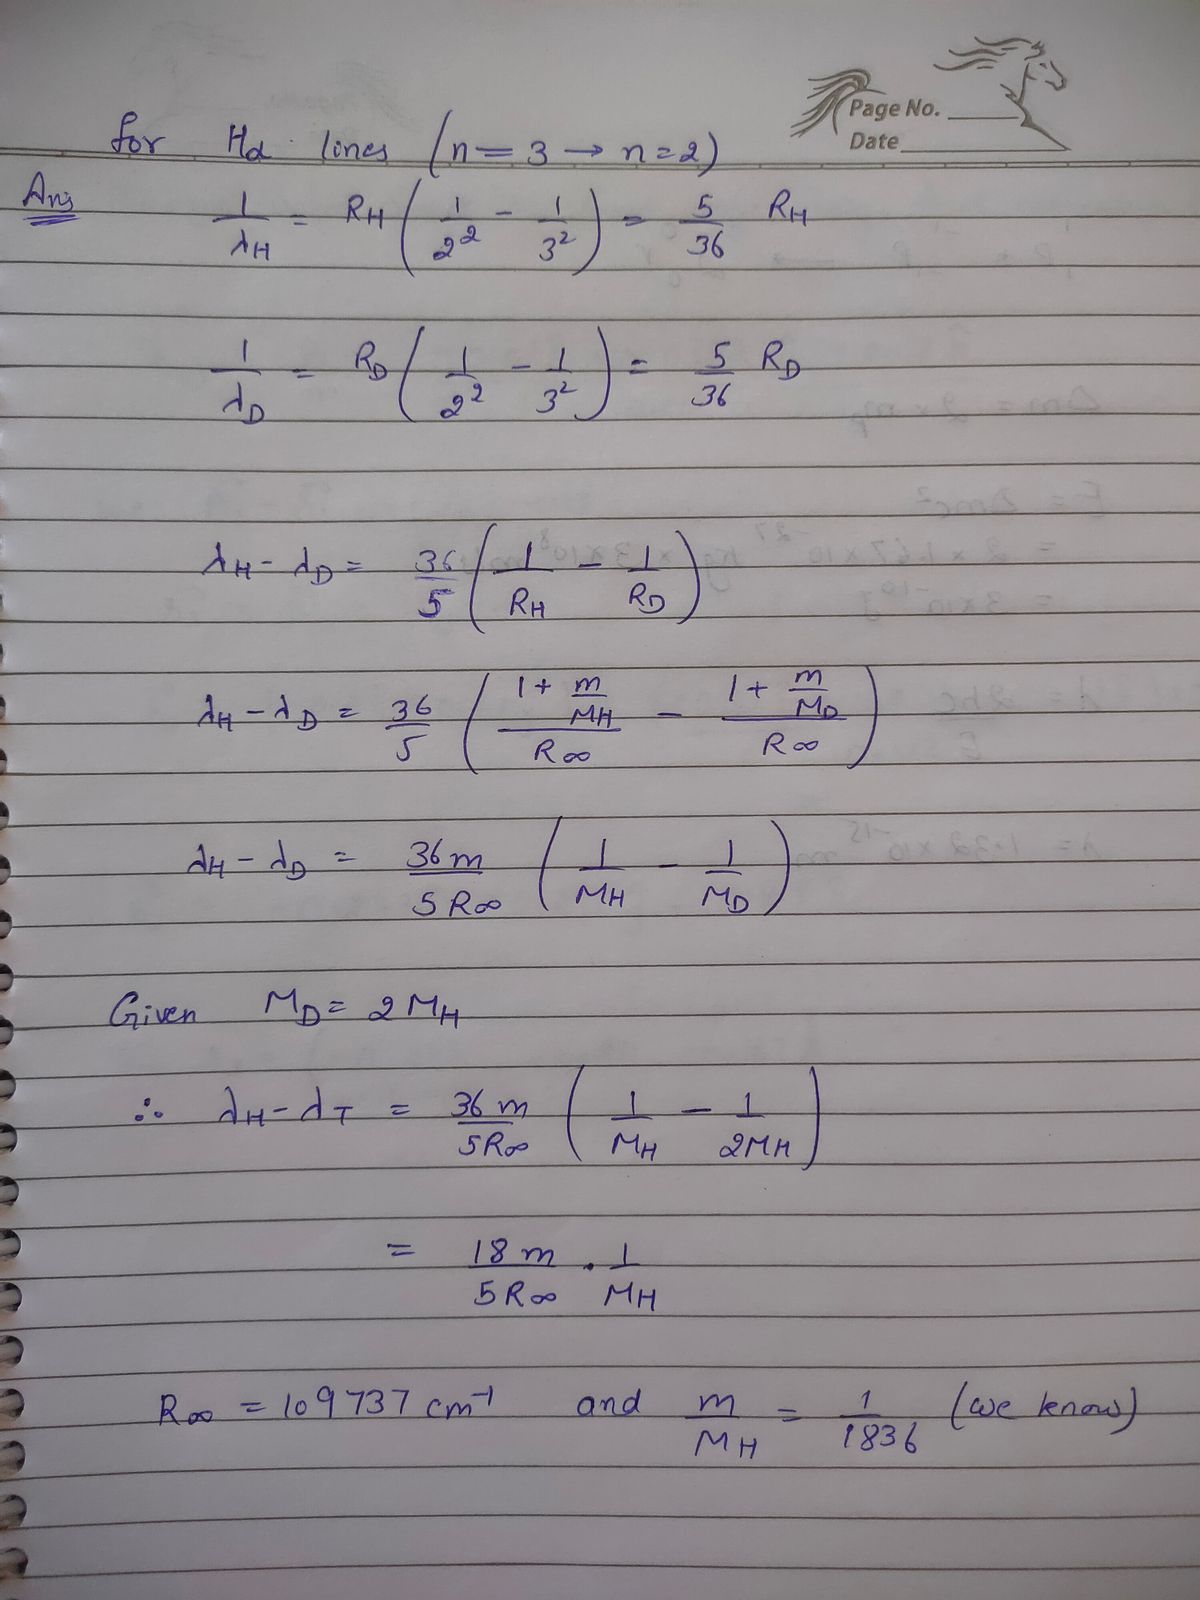 Page No.
Date
for Hα lines (n = 3 → n = 2)
Ans 1/λH = RH (1/2² - 1/3²) = 5/36 RH
1/λD = RD (1/2² - 1/3²) = 5/36 RD
λH - λD = 36/5 (1/RH - 1/RD)
λH - λD = 36/5 ((1 + m/MH)/R∞ - (1 + m/MD)/R∞)
λH - λD = 36m/5R∞ (1/MH - 1/MD)
Given MD = 2MH
∴ λH - λT = 36m/5R∞ (1/MH - 1/2MH)
= 18m/5R∞ . 1/MH
R∞ = 109737 cm⁻¹ and m/MH = 1/1836 (we know)